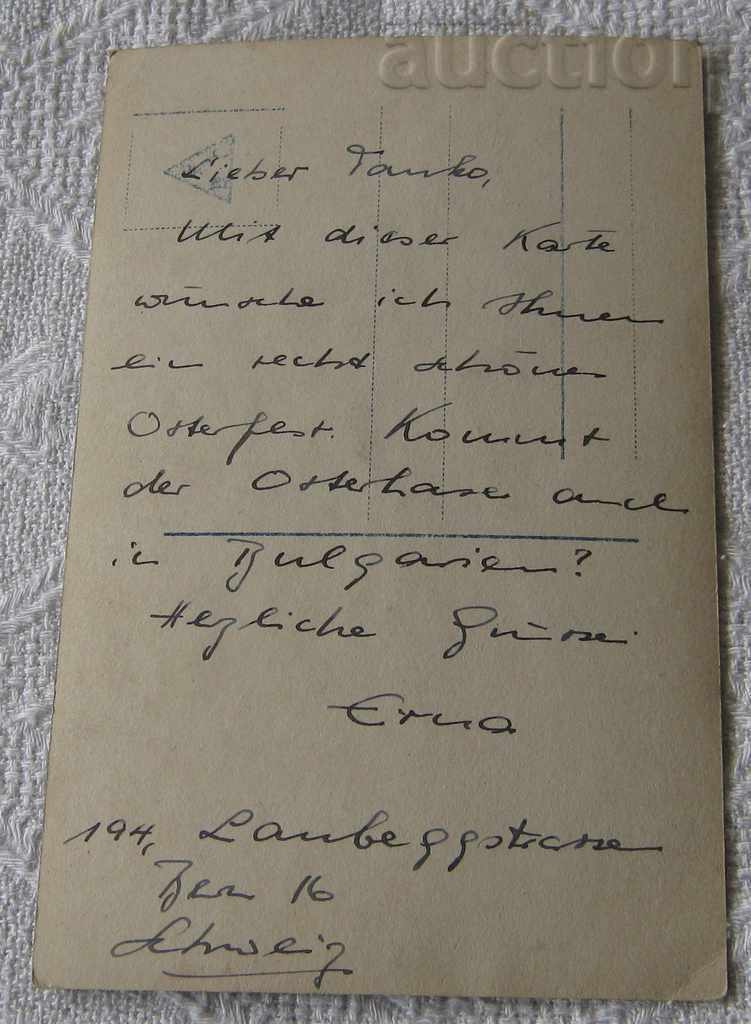 auction
Lieber Tanko,
Mit dieser Karte
wünsche ich Ihnen
ein recht schönes
Osterfest. Kommt
der Osterhase auch
in Bulgarien?
Herzliche Grüsse
Erna
194, Laubeggstrasse
Bern 16
Schweiz